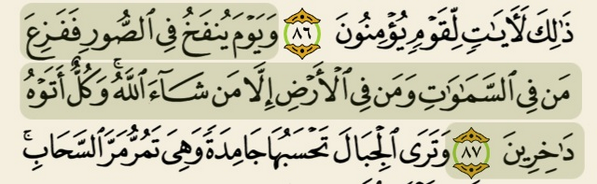 ذَٰلِكَ لَأٓيَٰتٖ لِّقَوۡمٖ يُؤۡمِنُونَ ٨٦ وَيَوۡمَ يُنفَخُ فِي ٱلصُّورِ فَفَزِعَ
مَن فِي ٱلسَّمَٰوَٰتِ وَمَن فِي ٱلۡأَرۡضِ إِلَّا مَن شَآءَ ٱللَّهُۚ وَكُلٌّ أَتَوۡهُ
دَٰخِرِينَ ٨٧ وَتَرَى ٱلۡجِبَالَ تَحۡسَبُهَا جَامِدَةٗ وَهِيَ تَمُرُّ مَرَّ ٱلسَّحَابِۚ